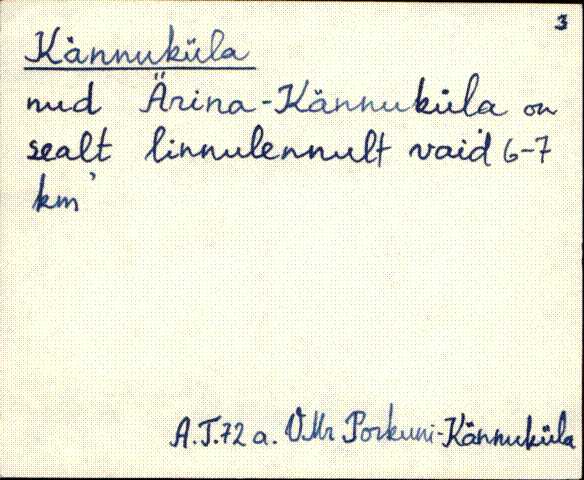 3
Kännuküla
nud Ärina-Kännuküla on
sealt linnulennult vaid 6-7
km'
A.T.72 a. VMr Porkuni-Kännuküla